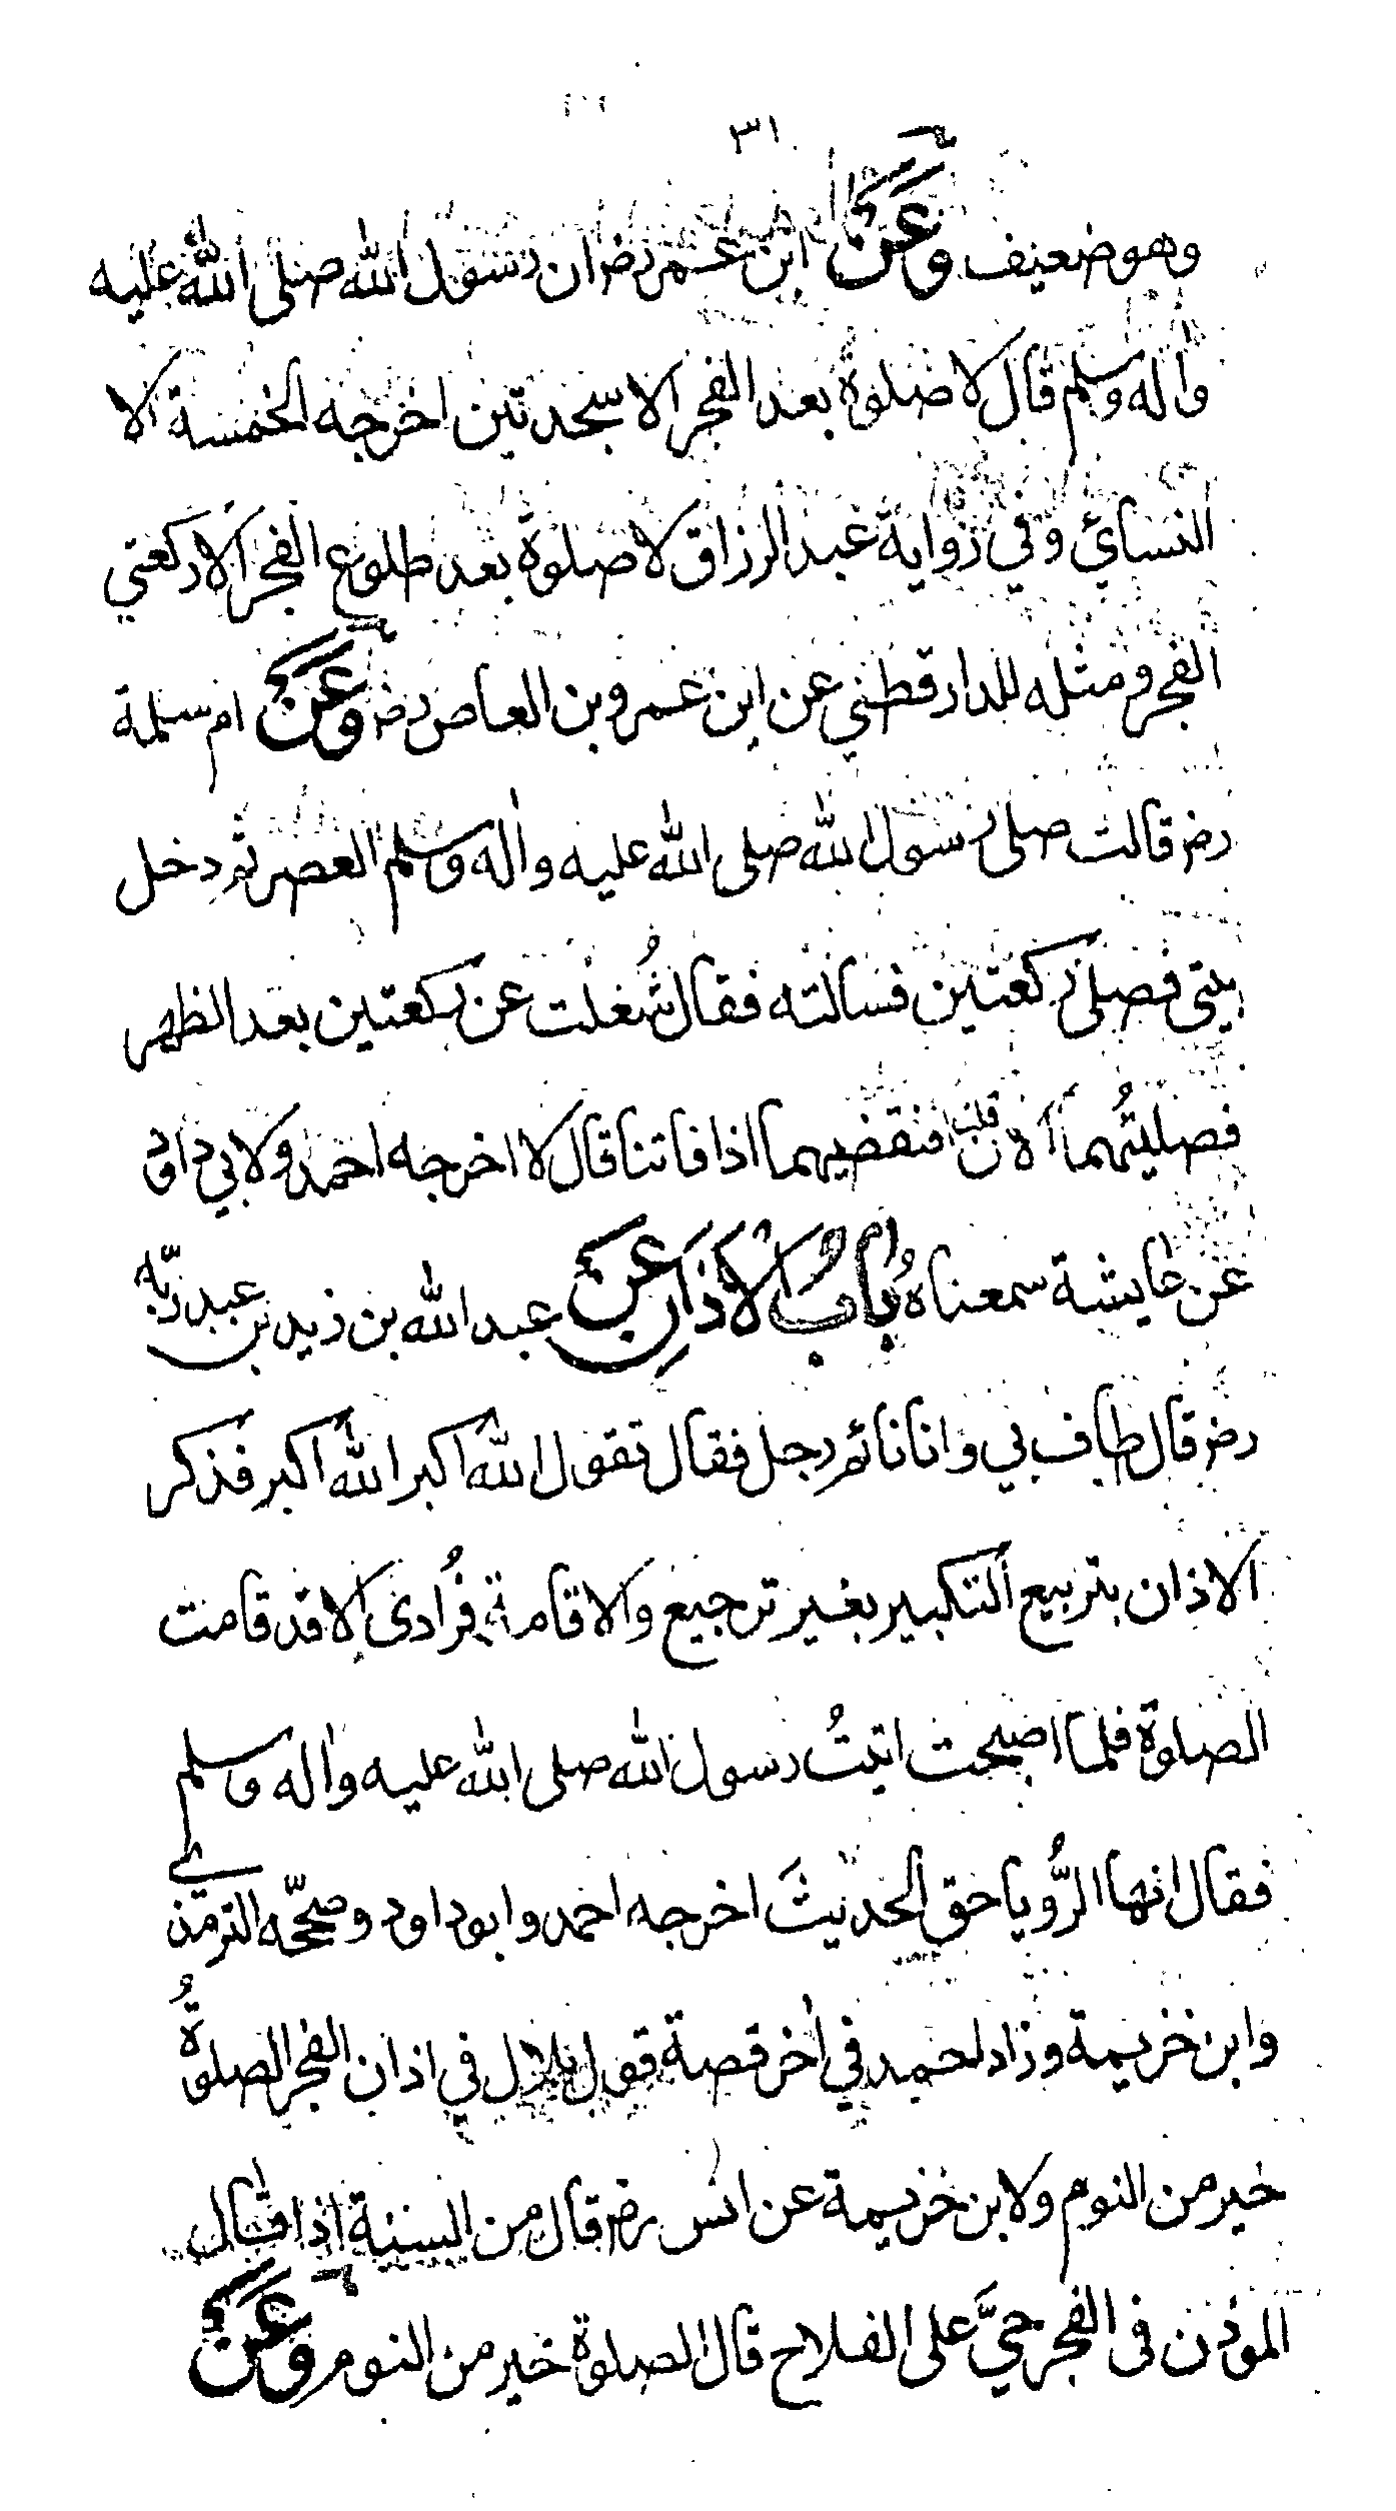 ٣١
وهو ضعيف وعن ابن عمر رضر ان رسول الله صلى الله عليه
واله وسلم قال لا صلوة بعد الفجر الا سجدتين اخرجه الخمسة الا
النسائي وفي رواية عبد الرزاق لا صلوة بعد طلوع الفجر الا ركعتي
الفجر ومثله للدارقطني عن ابن عمرو بن العاص رضر وعن ام سلمة
رضر قالت صلى رسول الله صلى الله عليه واله وسلم العصر ثم دخل
بيتى فصلى ركعتين فسالته فقال شُغلت عن ركعتين بعد الظهر
فصليتُهما الان قلت افنقضيهما اذا فاتنا قال لا اخرجه احمد ولابي داود
عن عايشة بمعناه بابُ الاذانِ عن عبد الله بن زيد بن عبد ربّه
رضر قال طاف بي وانا نائم رجل فقال تقول الله اكبر الله اكبر فذكر
الاذان بتربيع التكبير بغير ترجيع والاقامة فُرادى الا قد قامت
الصلوة فلما اصبحت اتيتُ رسول الله صلى الله عليه واله وسلم
فقال انها الرُّويا حق الحديثَ اخرجه احمد وابوداود وصحّحه الترمذي
وابن خزيمة وزاد احمد في اخر قصة قول بلال في اذان الفجر الصلوةُ
خير من النوم ولابن خزيمة عن انس رضر قال من السنة اذا قال
الموذن فى الفجر حيَّ على الفلاح قال الصلوة خير من النوم وعن